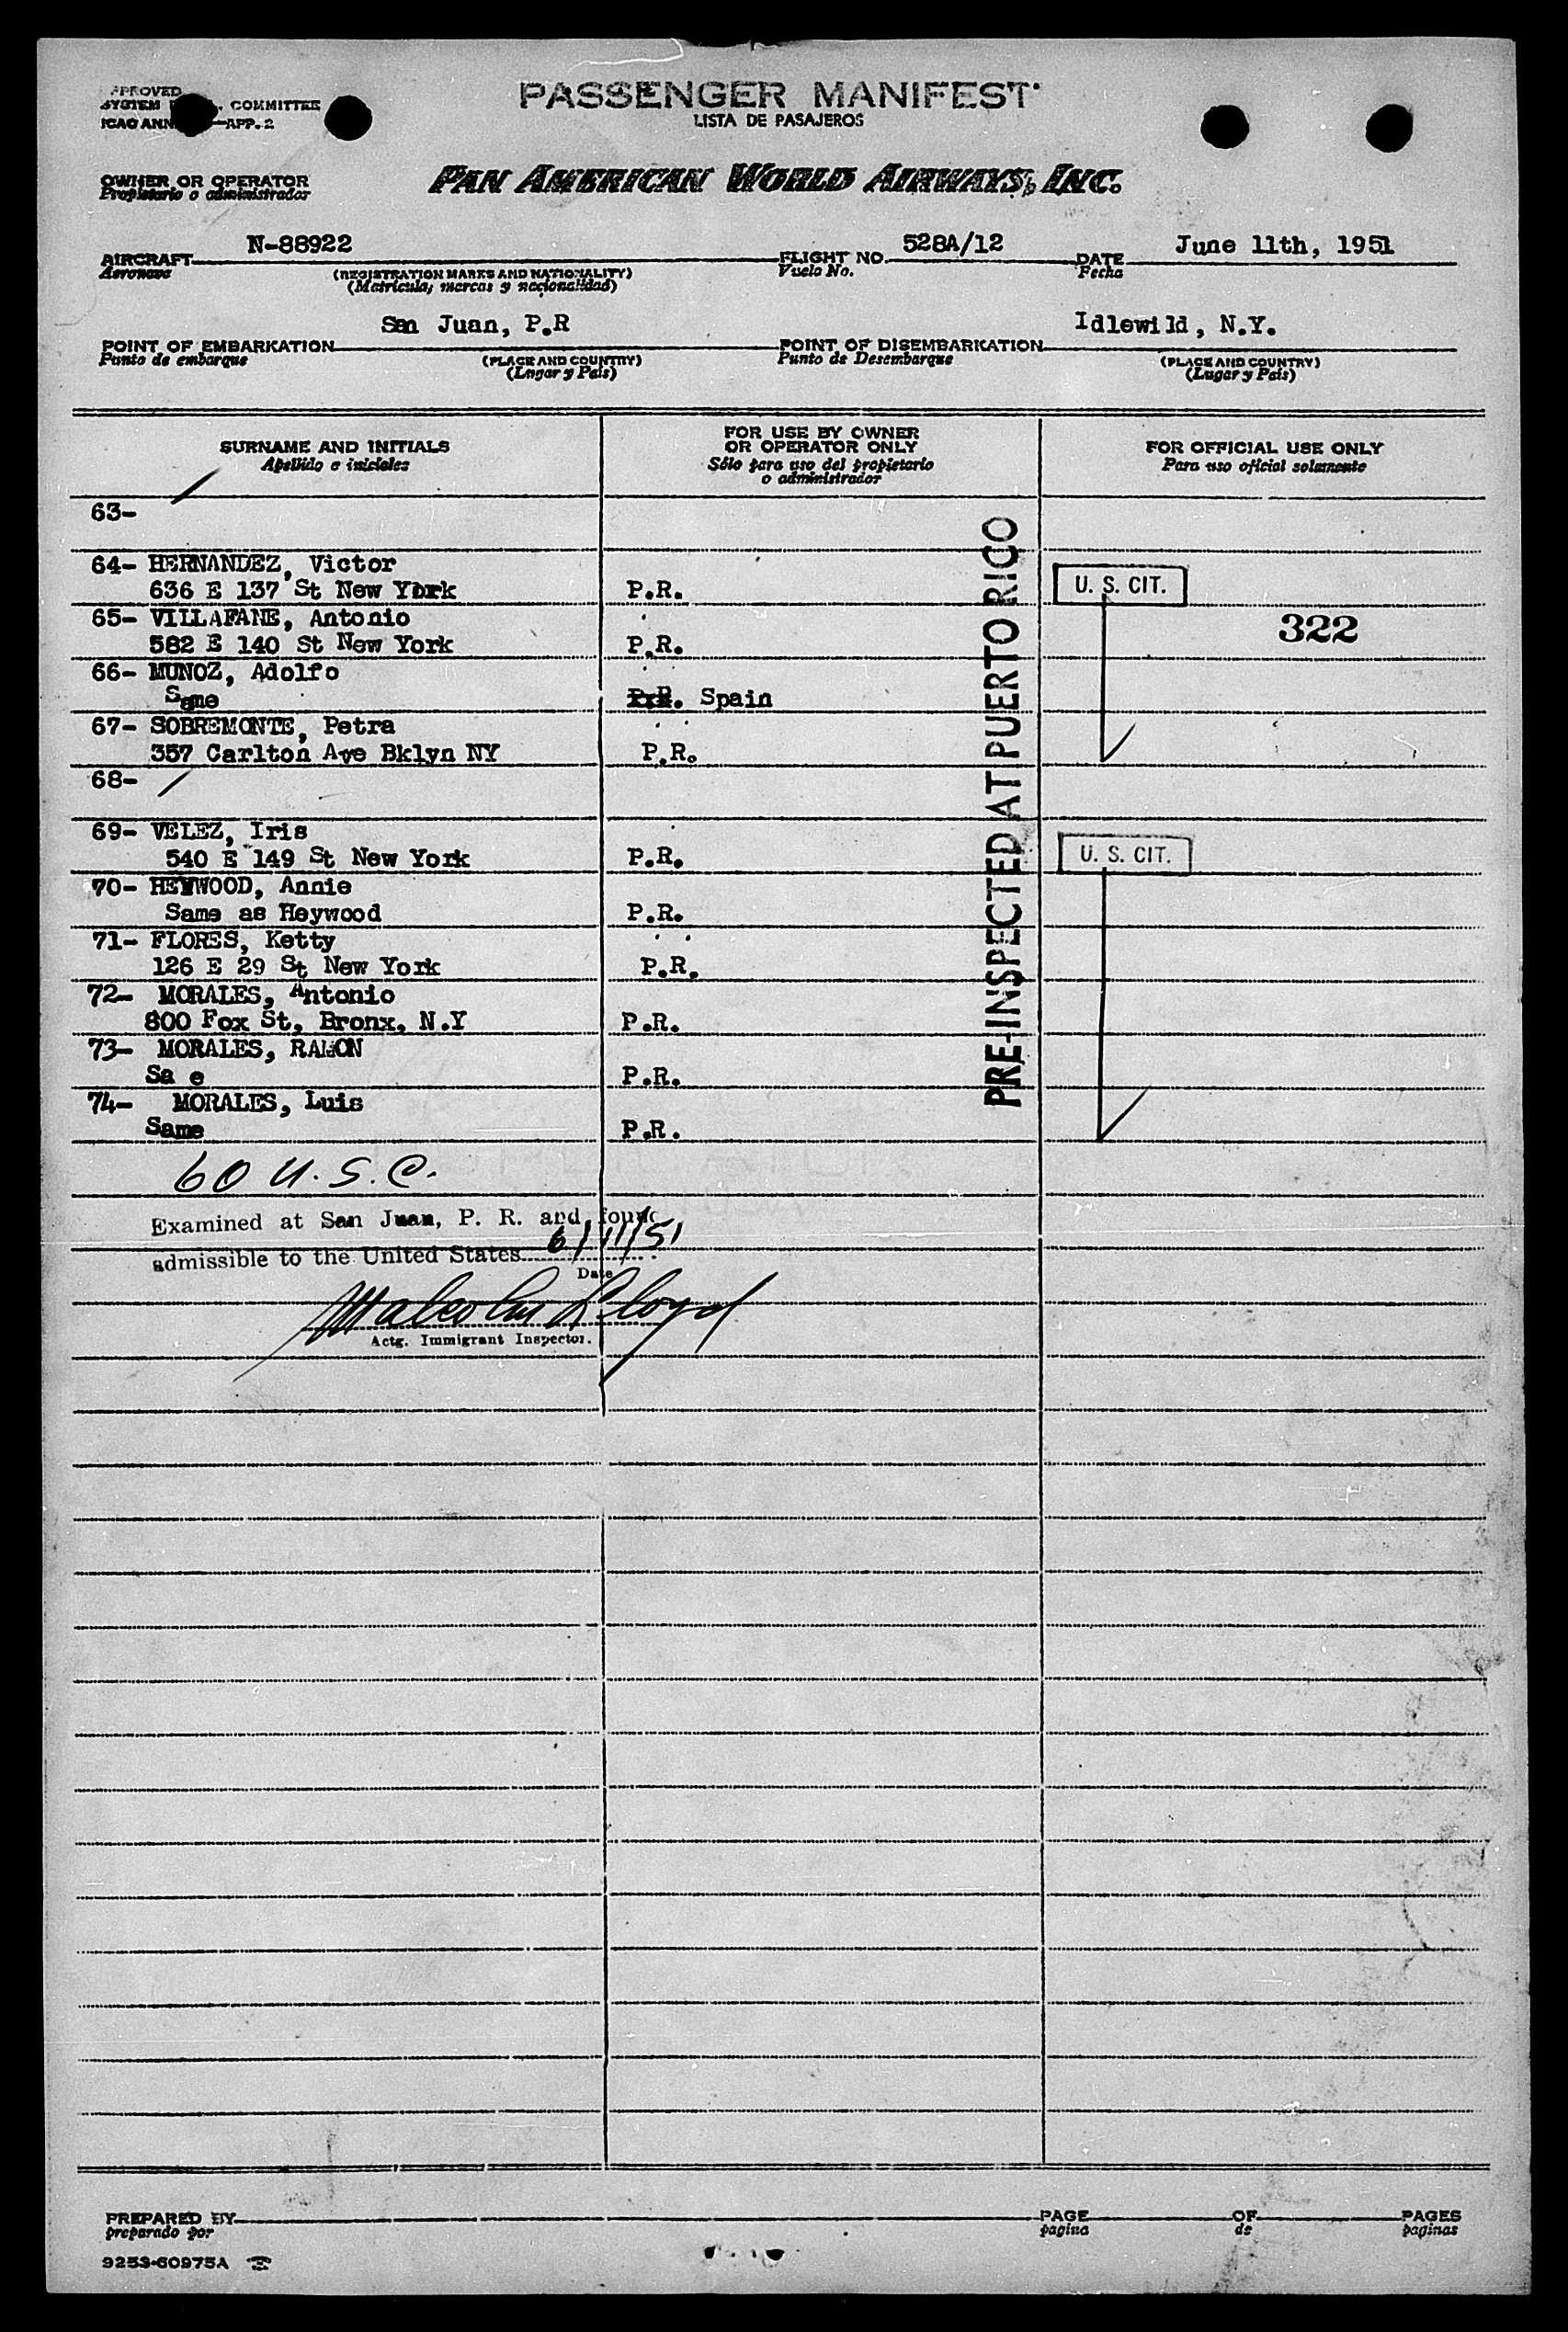 PASSENGER MANIFEST
LISTA DE PASAJEROS
COMMITTEE
APP. 2
OWNER OR OPERATOR
Propietario o administrador
PAN AMERICAN WORLD AIRWAYS, INC.
AIRCRAFT N-88922 FLIGHT NO. 528A/12 DATE June 11th, 1951
Aeronave (REGISTRATION MARKS AND NATIONALITY) Vuelo No. Fecha
(Matrícula, marcas y nacionalidad)
POINT OF EMBARKATION San Juan, P.R POINT OF DISEMBARKATION Idlewild, N.Y.
Punto de embarque (PLACE AND COUNTRY) Punto de Desembarque (PLACE AND COUNTRY)
(Lugar y País) (Lugar y País)
SURNAME AND INITIALS
Apellido e iniciales
FOR USE BY OWNER
OR OPERATOR ONLY
Sólo para uso del propietario
o administrador
FOR OFFICIAL USE ONLY
Para uso oficial solamente
63-
64- HERNANDEZ, Victor
636 E 137 St New York P.R. U. S. CIT.
65- VILLAFANE, Antonio 322
582 E 140 St New York P.R.
66- MUNOZ, Adolfo
Same Spain
67- SOBREMONTE, Petra
357 Carlton Ave Bklyn NY P.R.
68-
69- VELEZ, Iris
540 E 149 St New York P.R. U. S. CIT.
70- HEYWOOD, Annie
Same as Heywood P.R.
71- FLORES, Ketty
126 E 29 St New York P.R.
72- MORALES, Antonio
800 Fox St, Bronx, N.Y P.R.
73- MORALES, RAMON
Sa e P.R.
74- MORALES, Luis
Same P.R.
PRE-INSPECTED AT PUERTO RICO
60 U.S.C.
Examined at San Juan, P. R. and found
admissible to the United States 6/11/51
Date
Malcolm Lloyd
Actg. Immigrant Inspector.
PREPARED BY PAGE OF PAGES
preparado por pagina de paginas
9253-60975A